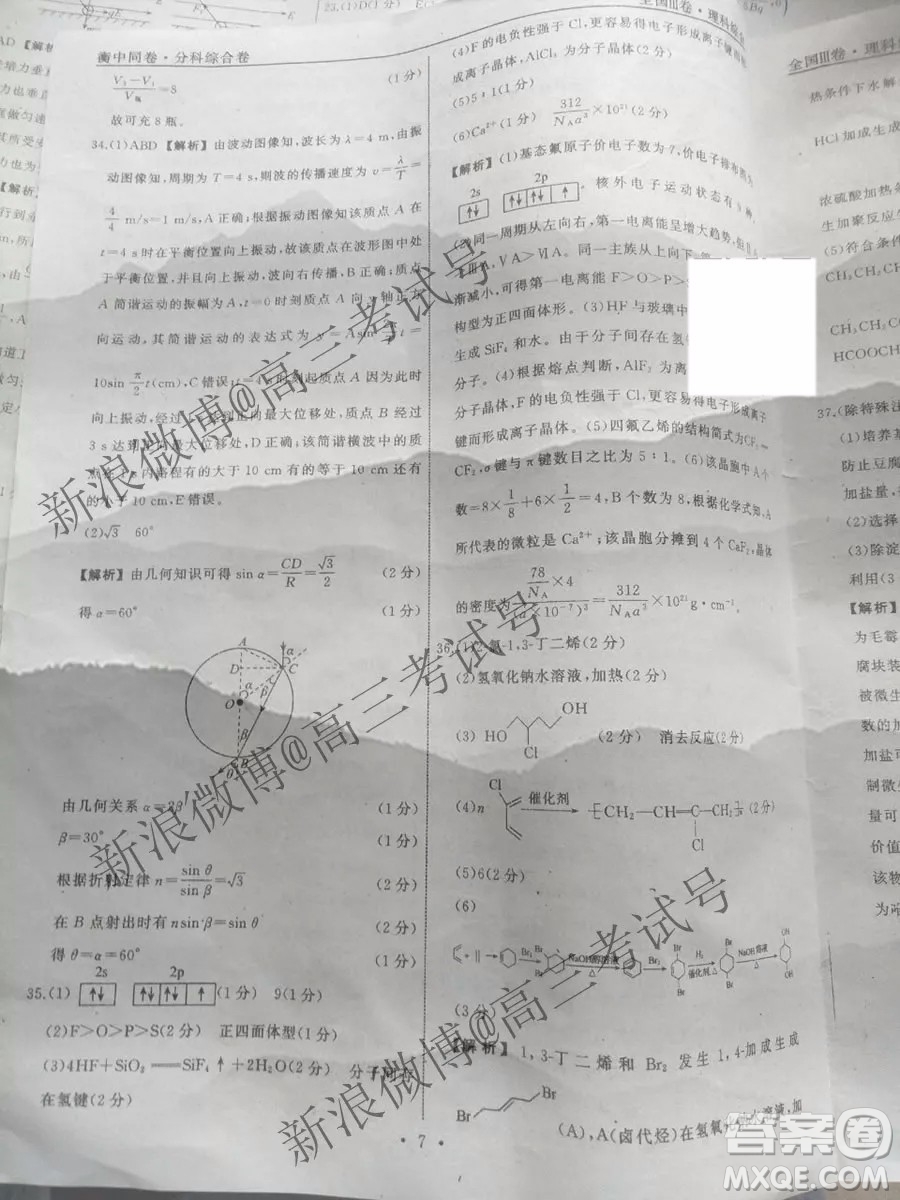 衡中同卷·分科综合卷
V₃-V₁/V瓶=8 (1分)
故可充8瓶。
34.(1)ABD 【解析】由波动图像知,波长为λ=4 m,由振
动图像知,周期为T=4 s,则波的传播速度为v=λ/T=
4/4 m/s=1 m/s,A正确;根据振动图像知该质点A在
t=4 s时在平衡位置向上振动,所以质点在波形图中处
于平衡位置,并且向上振动,波向右传播,B正确,
A简谐运动的振幅为A,t=0时刻质点A向y轴正方
向运动,其简谐运动的表达式为y=Asin
10sin π/2 t(cm),C错误;t=4 s时质点A
向上振动,
3 s达到正向最大位移处,D正确;该简谐横波中的质
内路程有的大于10 cm有的等于10 cm还有
的小于10 cm,E错误。
(2)√3 60°
【解析】由几何知识可得 sin α=CD/R=√3/2 (2分)
得α=60° (1分)
A
D C
O
B
由几何关系α=2β (1分)
β=30° (1分)
根据折射定律n=sin θ/sin β=√3 (2分)
在B点射出时有nsin β=sin θ (2分)
得θ=60° (1分)
2s 2p
35.(1) ↑↓ ↑↓ ↑↓ ↑ (1分) 9(1分)
(2)F>O>P>S(2分) 正四面体型(1分)
(3)4HF+SiO₂══SiF₄↑+2H₂O(2分) 分子间存
在氢键(2分)
(4)F的电负性强于Cl,更容易得电子形成离子键而
成离子晶体,AlCl₃为分子晶体(2分)
(5)5∶1(2分)
(6)Ca²⁺(1分) 312/(N_A a³)×10²¹(2分)
【解析】(1)基态氟原子价电子数为7,价电子排布图为
2s 2p
↑↓ ↑↓ ↑↓ ↑ 。核外电子运动状态有9种,
(2)同一周期从左向右,第一电离能呈增大趋势,但
ⅤA>ⅥA。同一主族从上向下,第
渐减小,可得第一电离能F>O>P>
构型为正四面体形。(3)HF与玻璃中
生成SiF₄和水。由于分子间存在氢
分子。(4)根据熔点判断,AlF₃
分子晶体,F的电负性强于Cl,更容易得电子形成离子
键而形成离子晶体。(5)四氟乙烯的结构简式为CF₂═
CF₂,σ键与π键数目之比为5∶1。(6)该晶胞中A个
数=8×1/8+6×1/2=4,B个数为8,根据化学式知,A
所代表的微粒是Ca²⁺,该晶胞分摊到4个CaF₂,晶体
的密度为(78/N_A×4)/(a×10⁻⁷)³=312/(N_A a³)×10²¹ g·cm⁻³。
36.(1)2-氯-1,3-丁二烯(2分)
(2)氢氧化钠水溶液,加热(2分)
(3) HO Cl OH (2分) 消去反应(2分)
(4)n Cl 催化剂 ─[CH₂─CH═C─CH₂]ₙ(2分)
Cl
(5)6(2分)
(6)
Br₂ Br Br NaOH醇溶液 △ Br₂ Br Br H₂ 催化剂,△ Br Br NaOH溶液 △ OH OH
(3分)
【解析】 1,3-丁二烯和Br₂发生1,4-加成生成
Br Br (A),A(卤代烃)在氢氧化钠水溶液,加
·7·
全国Ⅲ卷·理科综合
全国Ⅲ卷·理科
热条件下水解
HCl加成生成
浓硫酸加热条
生加聚反应生
(5)符合条件
CH₃CH₂
CH₃CH₂
HCOOC
37.(除特殊注
(1)培养基
防止豆腐
加盐量,
(2)选择
(3)除淀
利用(3
【解析】
为毛霉
腐块装
被微生
数的加
加盐可
制微
量可
价值
该物
为
23.(1)D(1分)
新浪微博@高三考试号
新浪微博@高三考试号
新浪微博@高三考试号
答案圈
MXQE.COM